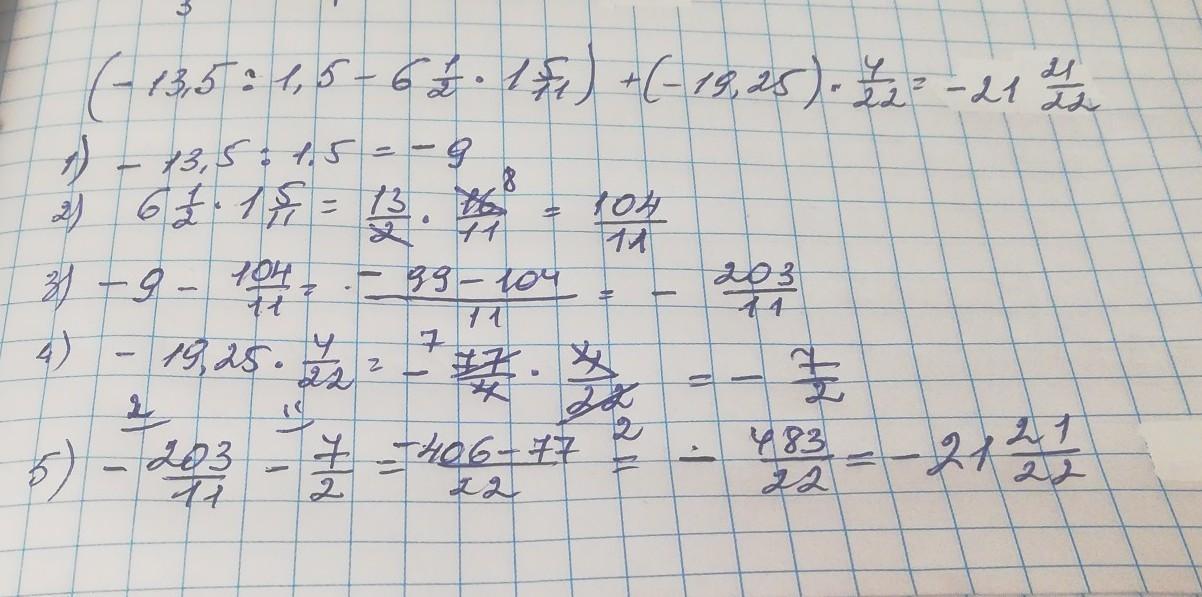 3
(-13,5 : 1,5 - 6 1/2 · 1 5/11) + (-19,25) · 4/22 = -21 21/22
1) -13,5 : 1.5 = -9
2) 6 1/2 · 1 5/11 = 13/2 · 16/11 8 = 104/11
3) -9 - 104/11 = -99-104/11 = - 203/11
4) - 19,25 · 4/22 = - 7 77/4 · 4/22 2 = - 7/2
2 11
5) - 203/11 - 7/2 = -406-77/22 = - 483/22 = -21 21/22